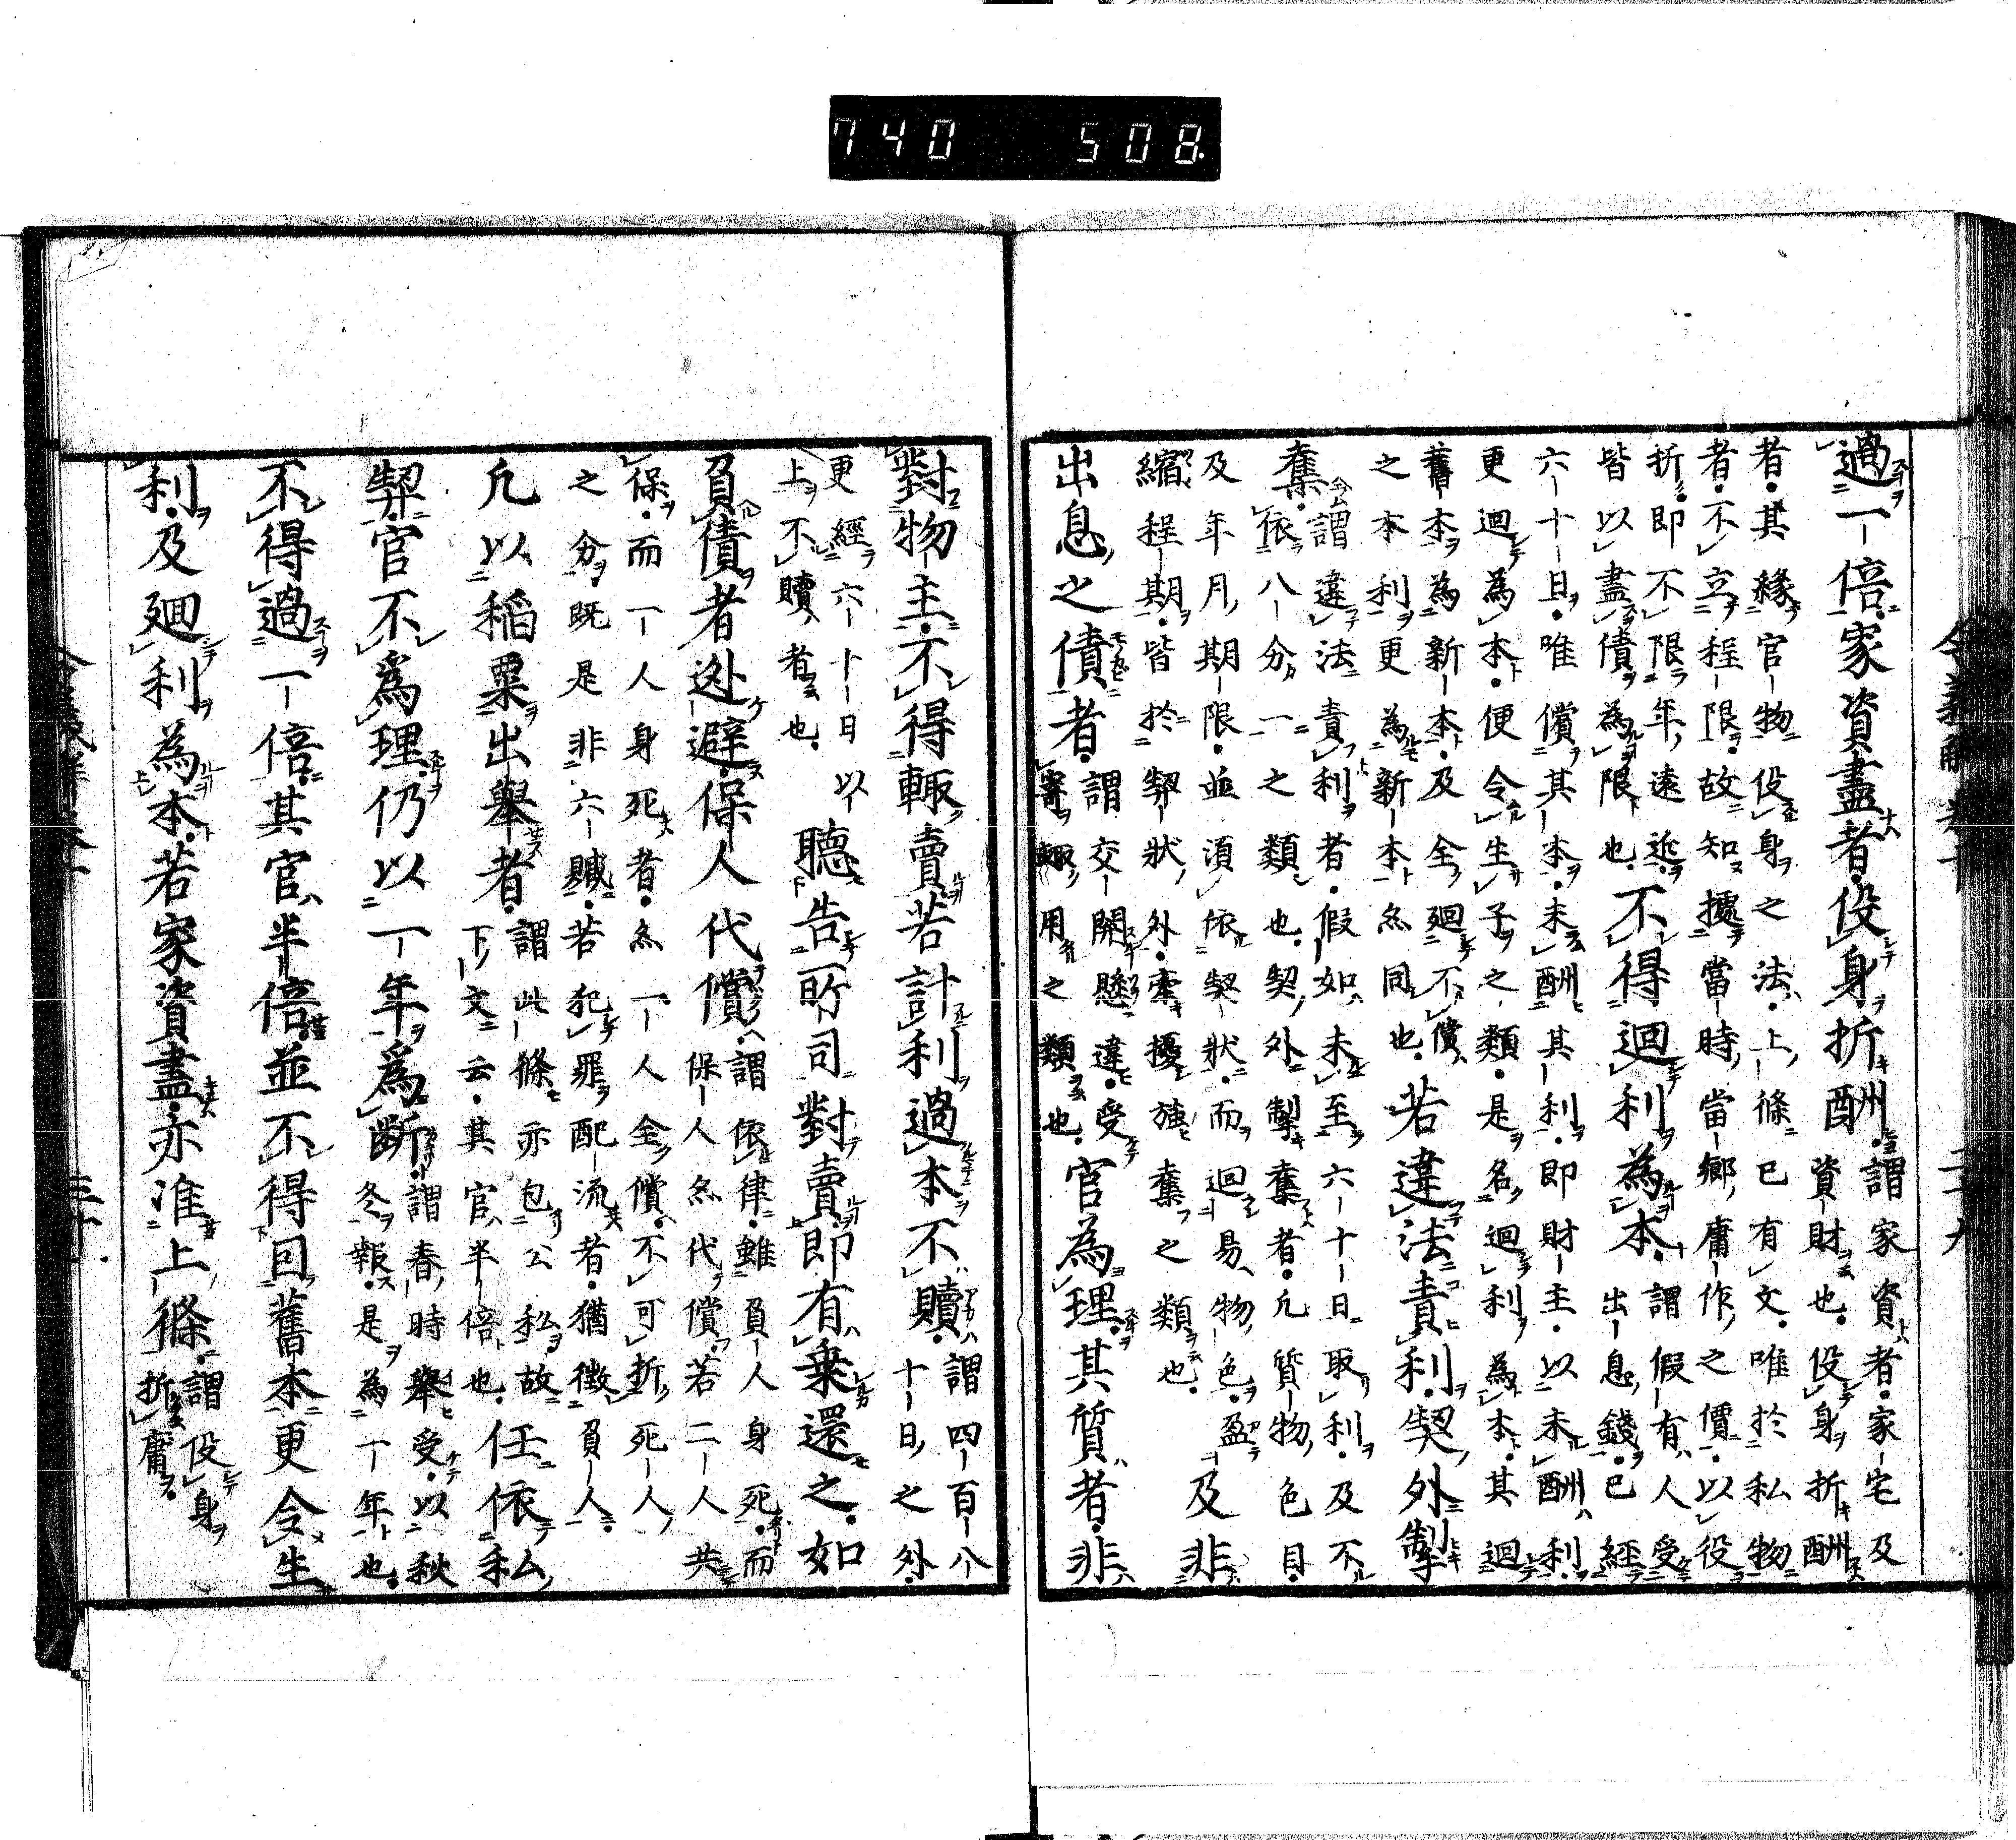 過一倍家資盡者役身折酬謂家資者家宅及
資財也役身折酬
者其縁官物役身之法上條已有文唯於私物
者不立程限故知據當時當郷庸作之價以役
折即不限年遠近
皆以盡債為限也不得迴利為本謂假有人受
出息錢已經
六十日唯償其本未酬其利即財主以未酬利
更迴為本便令生子之類是名迴利為本其迴
舊本為新本及全迴不償
之本利更為新本亦同也若違法責利契外掣
奪謂違法責利者假如未至六十日取利及不
依八分一之類也契外掣奪者凡質物色目
及年月期限並須依契状而迴易物色盈
縮程期皆於契状外牽擾強奪之類也及非
出息之債者謂交關懸違受
寄輙用之類也官為理其質者非
對物主不得輙賣若計利過本不贖謂四百八
十日之外
更經六十日以
上不贖者也聽告所司對賣即有乗還之如
負債者逃避保人代償謂依律雖負人身死而
保人亦代償若二人共
保而一人身死者亦一人全償不可折死人
之分既是非六贓若犯罪配流者猶徴負人
凡以稻粟出舉者謂此條亦包公私故
下文云其官半倍也任依私
契官不為理仍以一年為断謂春時舉受以秋
冬報是為一年也
不得過一倍其官半倍並不得回舊本更令生
利及廻利為本若家資盡亦准上條謂役身
折庸
740 508